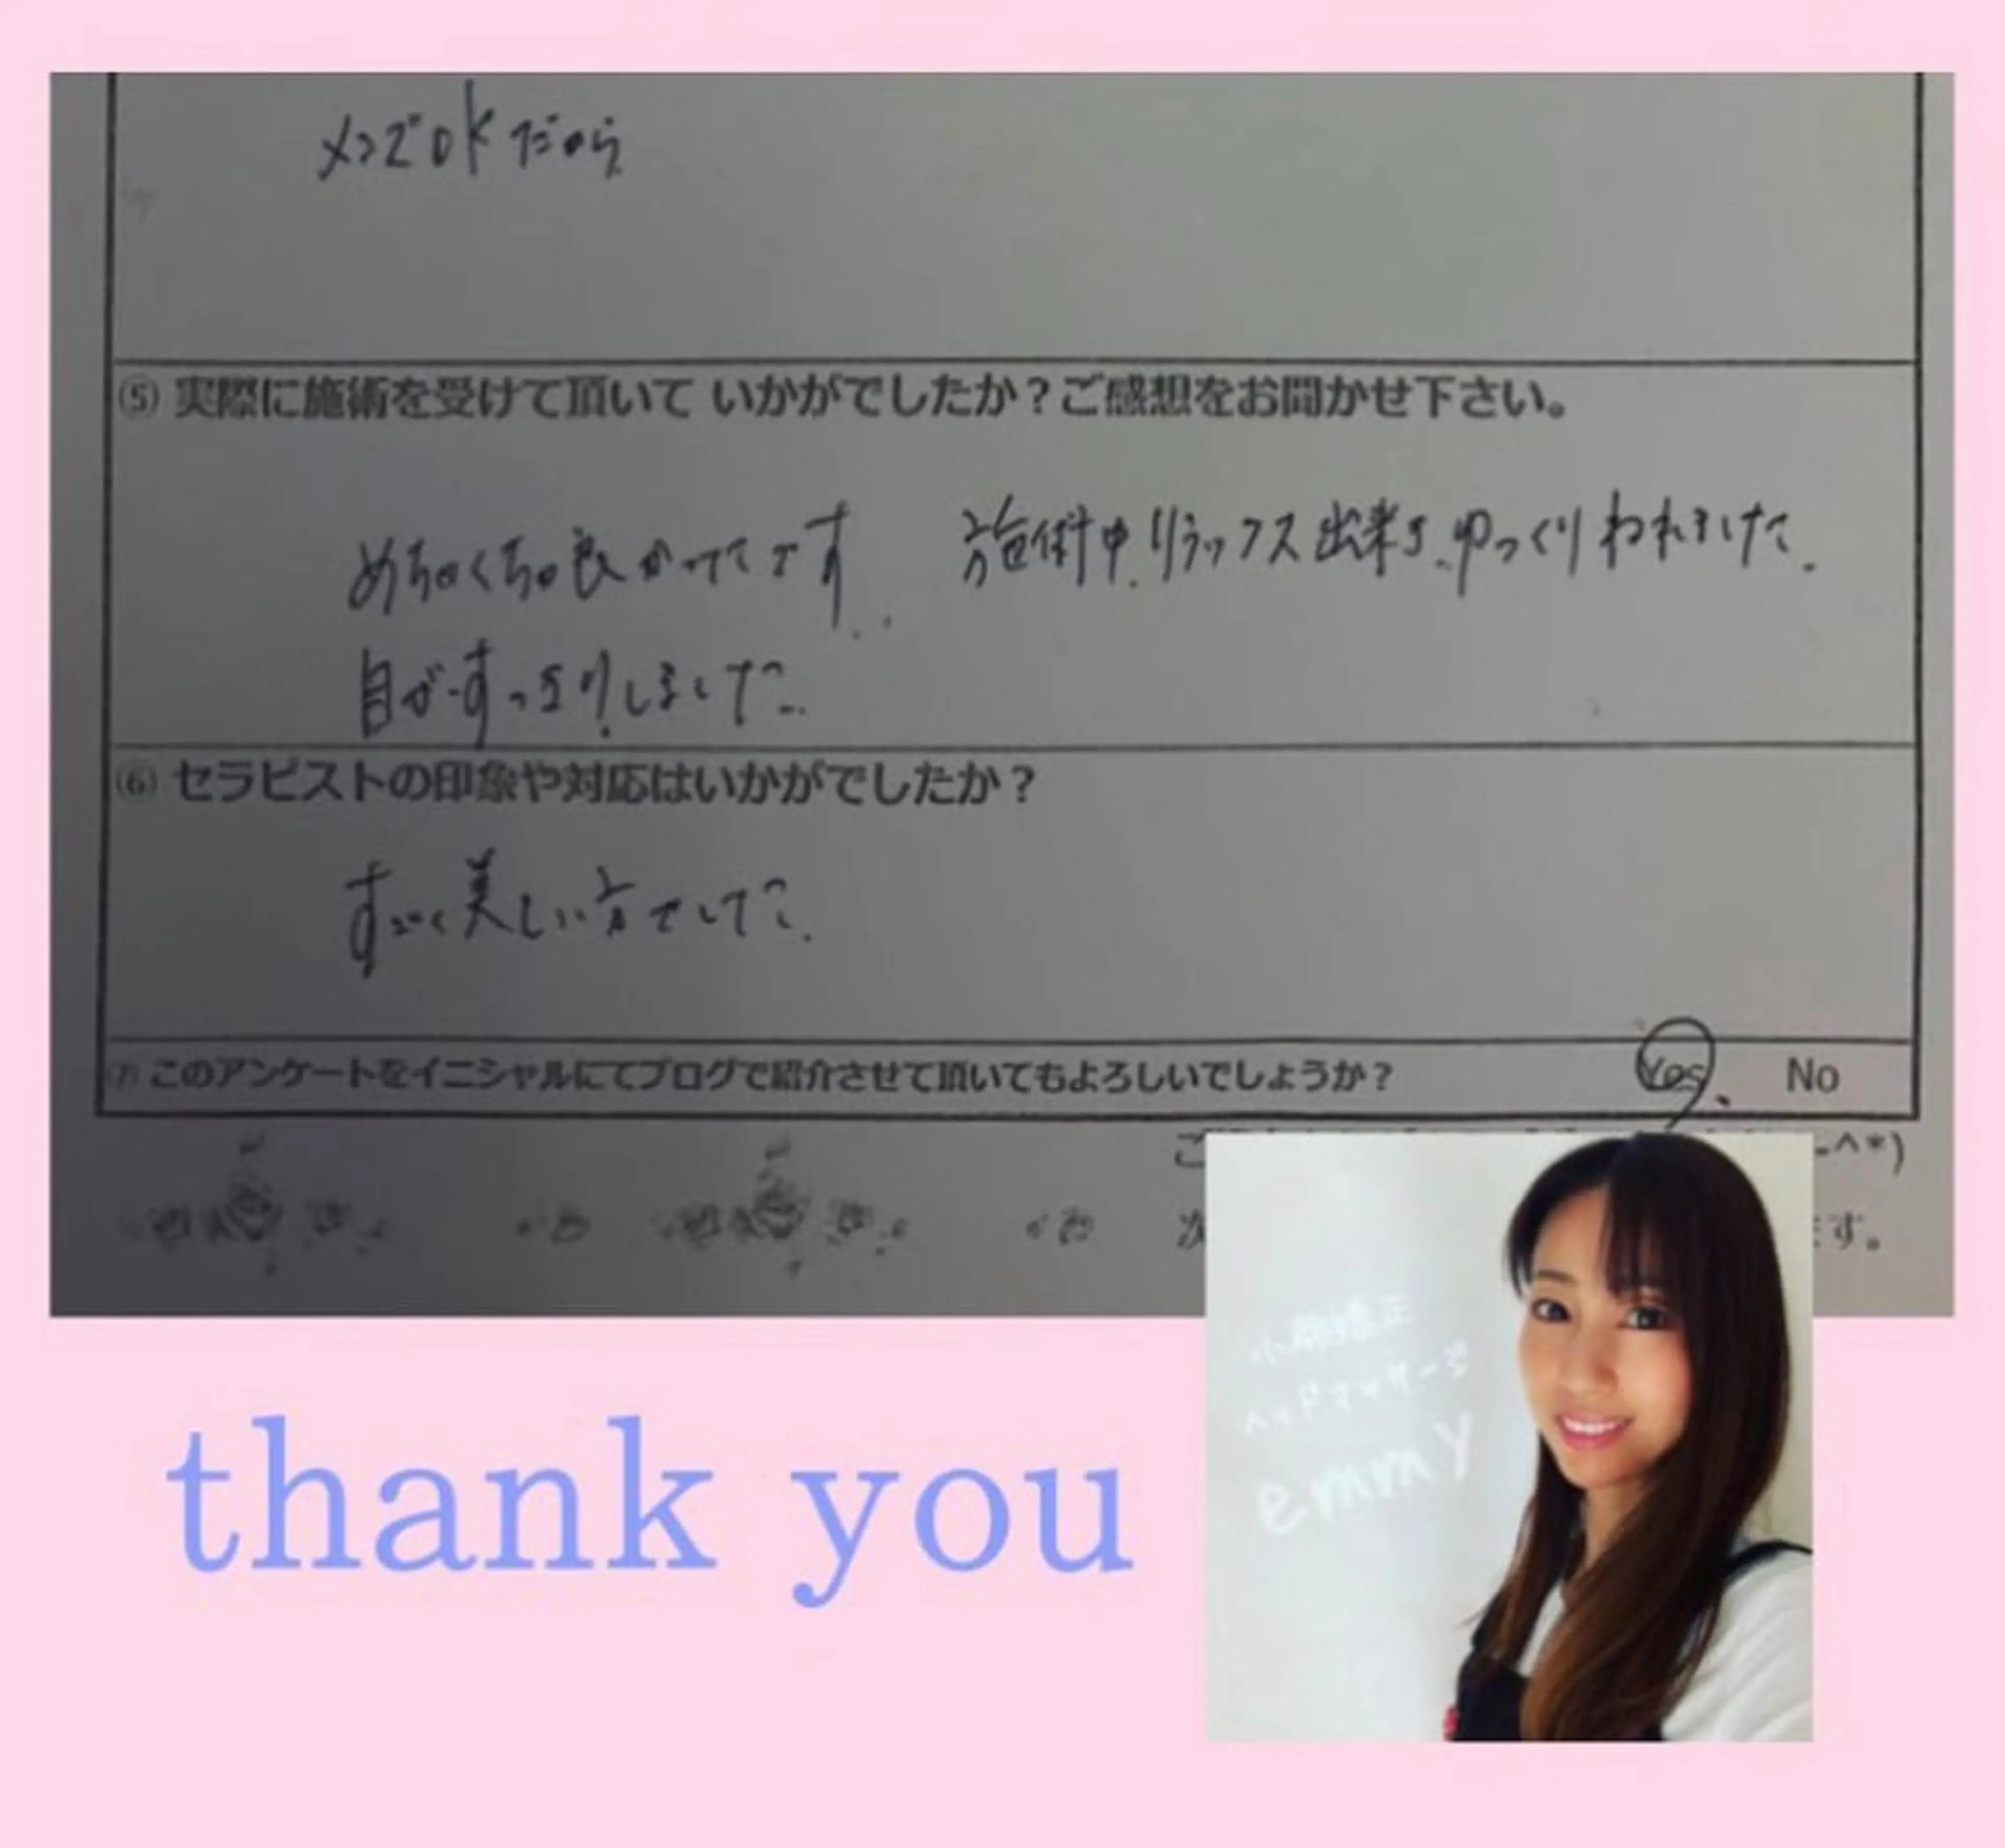 メンズOKだから
⑤ 実際に施術を受けて頂いて いかがでしたか？ご感想をお聞かせ下さい。
めちゃくちゃ良かったです 施術中、リラックス出来き、ゆっくり
目がすっきりしました
⑥ セラピストの印象や対応はいかがでしたか？
すごく美しい方でした。
⑦ このアンケートをイニシャルにてブログで紹介させて頂いてもよろしいでしょうか？ Yes、 No
ご -^*)
次 ます。
小顔矯正
ヘッドマッサージ
emmy
thank you